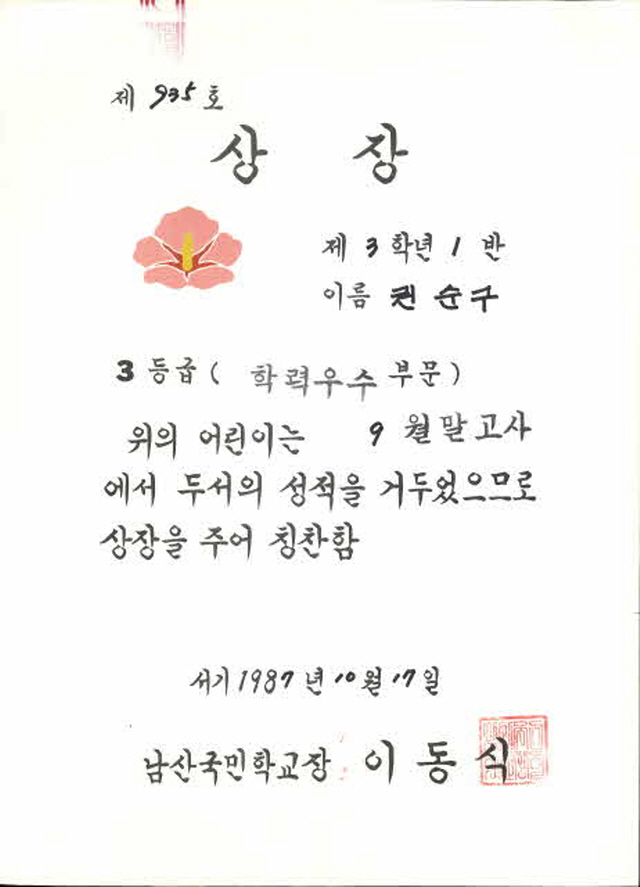 제 935 호
상 장
제 3 학년 1 반
이름 권순구
3 등급 ( 학력우수 부문 )
위의 어린이는 9 월말고사
에서 두서의 성적을 거두었으므로
상장을 주어 칭찬함
서기 1987 년 10 월 17 일
남산국민학교장 이 동 식